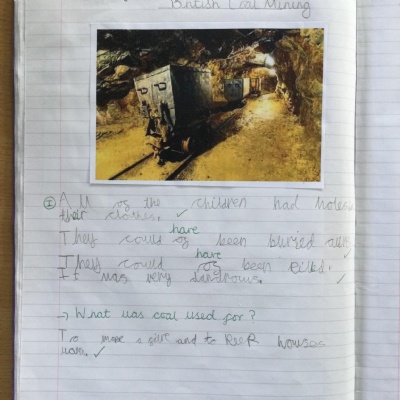 British Coal Mining
I
All of the children had holes
their clothes.
have
They could of been buried
have
They could of been killed.
It was very
→ What was coal used for?
To make a fire and to keep houses
warm.